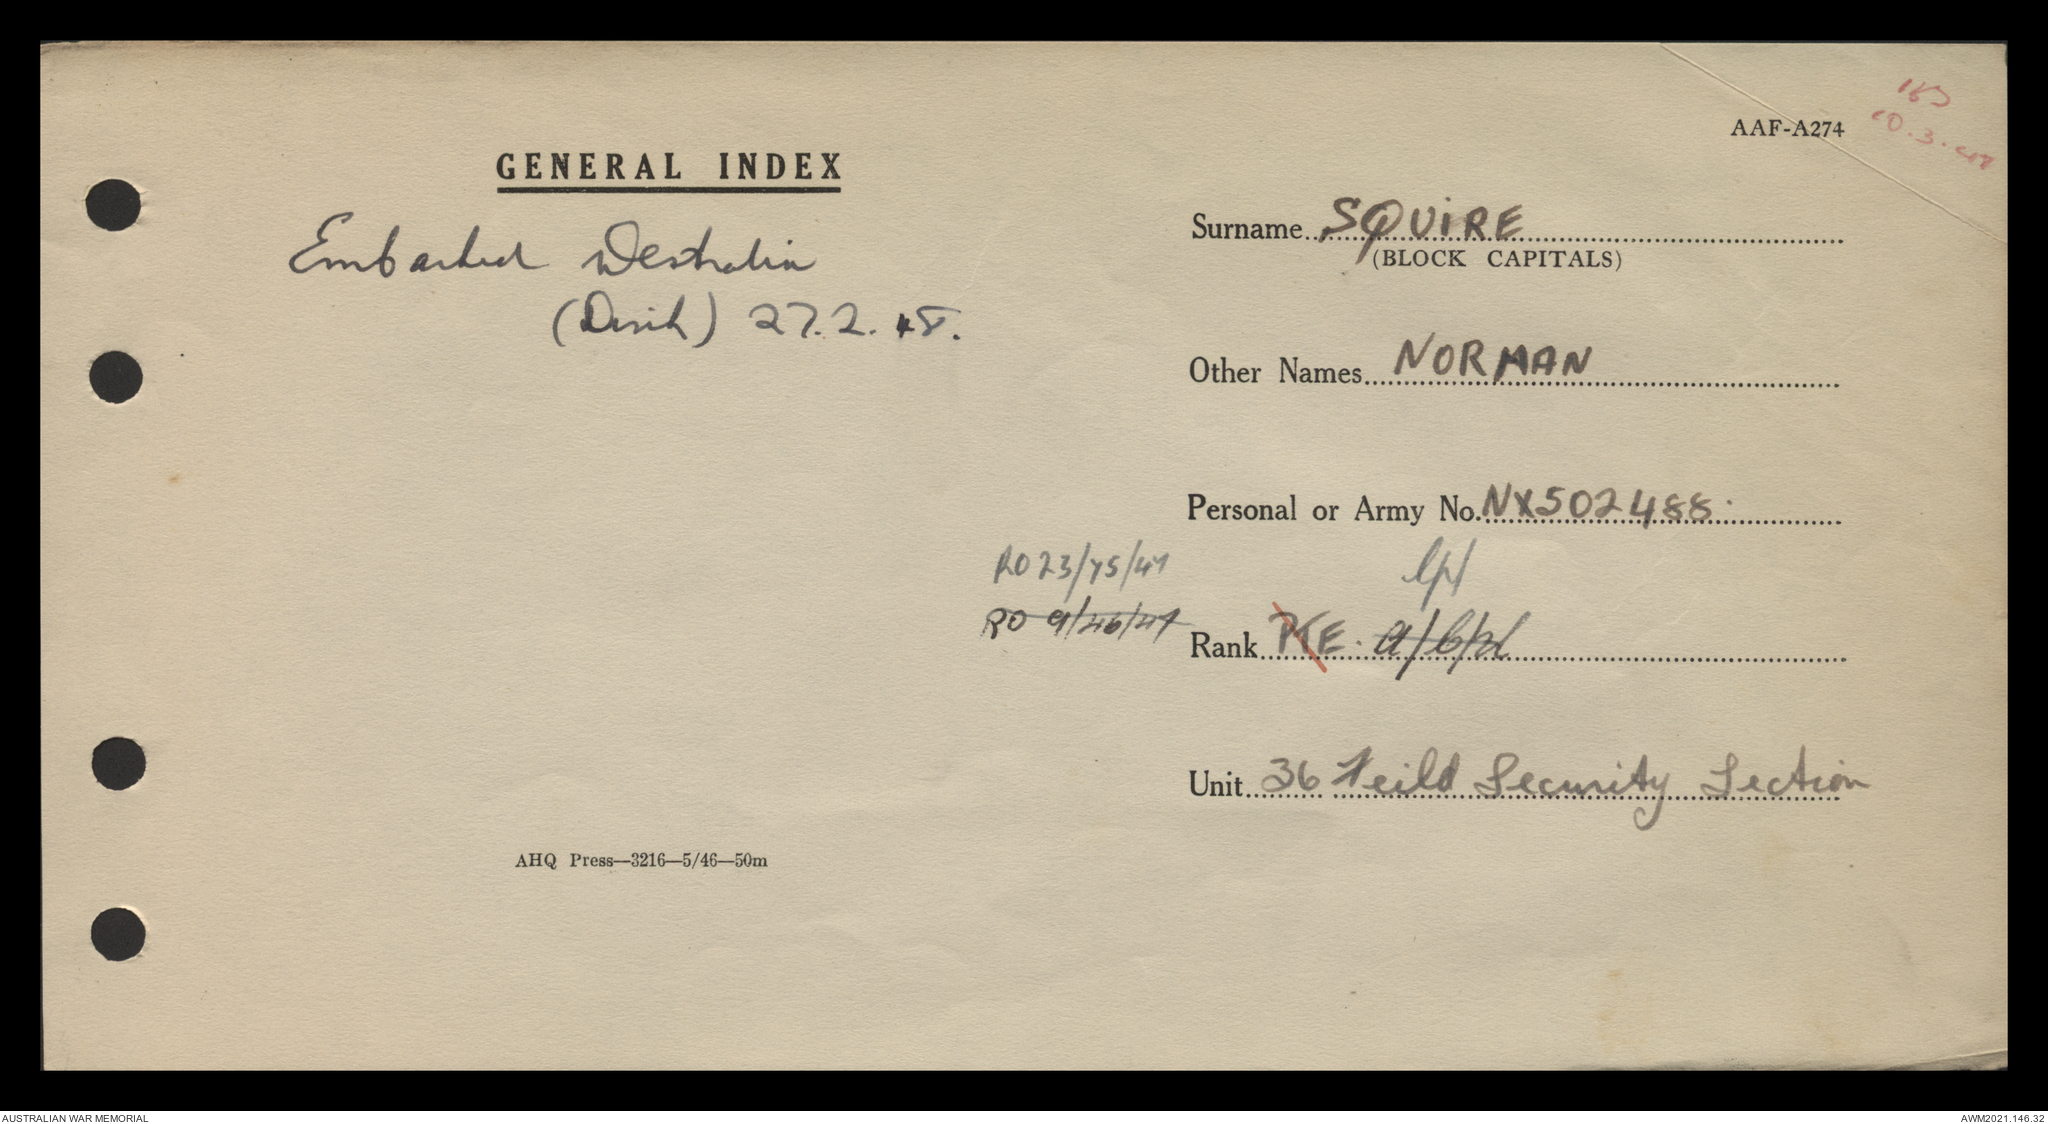 GENERAL INDEX
Embarked Westralia
(Disch) 27.2.48.
AHQ Press—3216—5/46—50m
AAF-A274
Surname SQUIRE
(BLOCK CAPITALS)
Other Names NORMAN
Personal or Army No. NX502488.
RO 23/75/47 Cpl
RO 9/46/47
Rank PTE. A/Cpl
Unit 36 Feild Security Section
AUSTRALIAN WAR MEMORIAL
AWM2021.146.32